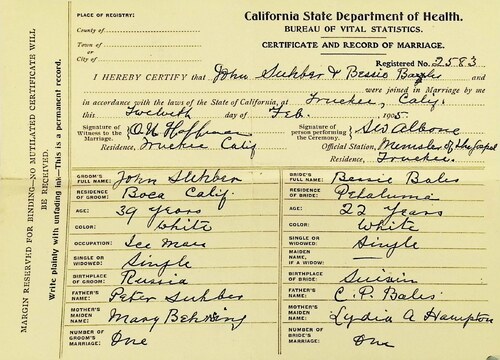 California State Department of Health.
PLACE OF REGISTRY:
BUREAU OF VITAL STATISTICS.
County of
Town of
CERTIFICATE AND RECORD OF MARRIAGE.
or
City of
Registered No. 2583
I HEREBY CERTIFY that John Sukber & Bessie
were joined in Marriage by me
in accordance with the laws of the State of California, at Truckee, Calif.
this Twelveth day of Feb. 1905.
Signature of Witness to the Marriage: O. N. Hoffman
Signature of person performing the Ceremony.
Residence, Truckee Calif
Official Station, Minister of the Gospel
Residence, Truckee.
GROOM'S FULL NAME: John Sukber
BRIDE'S FULL NAME: Bessie Bales
RESIDENCE OF GROOM: Boca Calif.
RESIDENCE OF BRIDE: Petaluma
AGE: 39 Years
AGE: 22 Years
COLOR: White
COLOR: White
OCCUPATION: Ice Man
SINGLE OR WIDOWED: Single
SINGLE OR WIDOWED: Single
MAIDEN NAME, IF A WIDOW:
BIRTHPLACE OF GROOM: Russia
BIRTHPLACE OF BRIDE: Suisin
FATHER'S NAME: Peter Sukber
FATHER'S NAME: C. P. Bales
MOTHER'S MAIDEN NAME: Mary Behring
MOTHER'S MAIDEN NAME: Lydia A Hampton
NUMBER OF GROOM'S MARRIAGE: One
NUMBER OF BRIDE'S MARRIAGE: One
MARGIN RESERVED FOR BINDING—NO MUTILATED CERTIFICATE WILL
BE RECEIVED.
Write plainly with unfading ink—This is a permanent record.